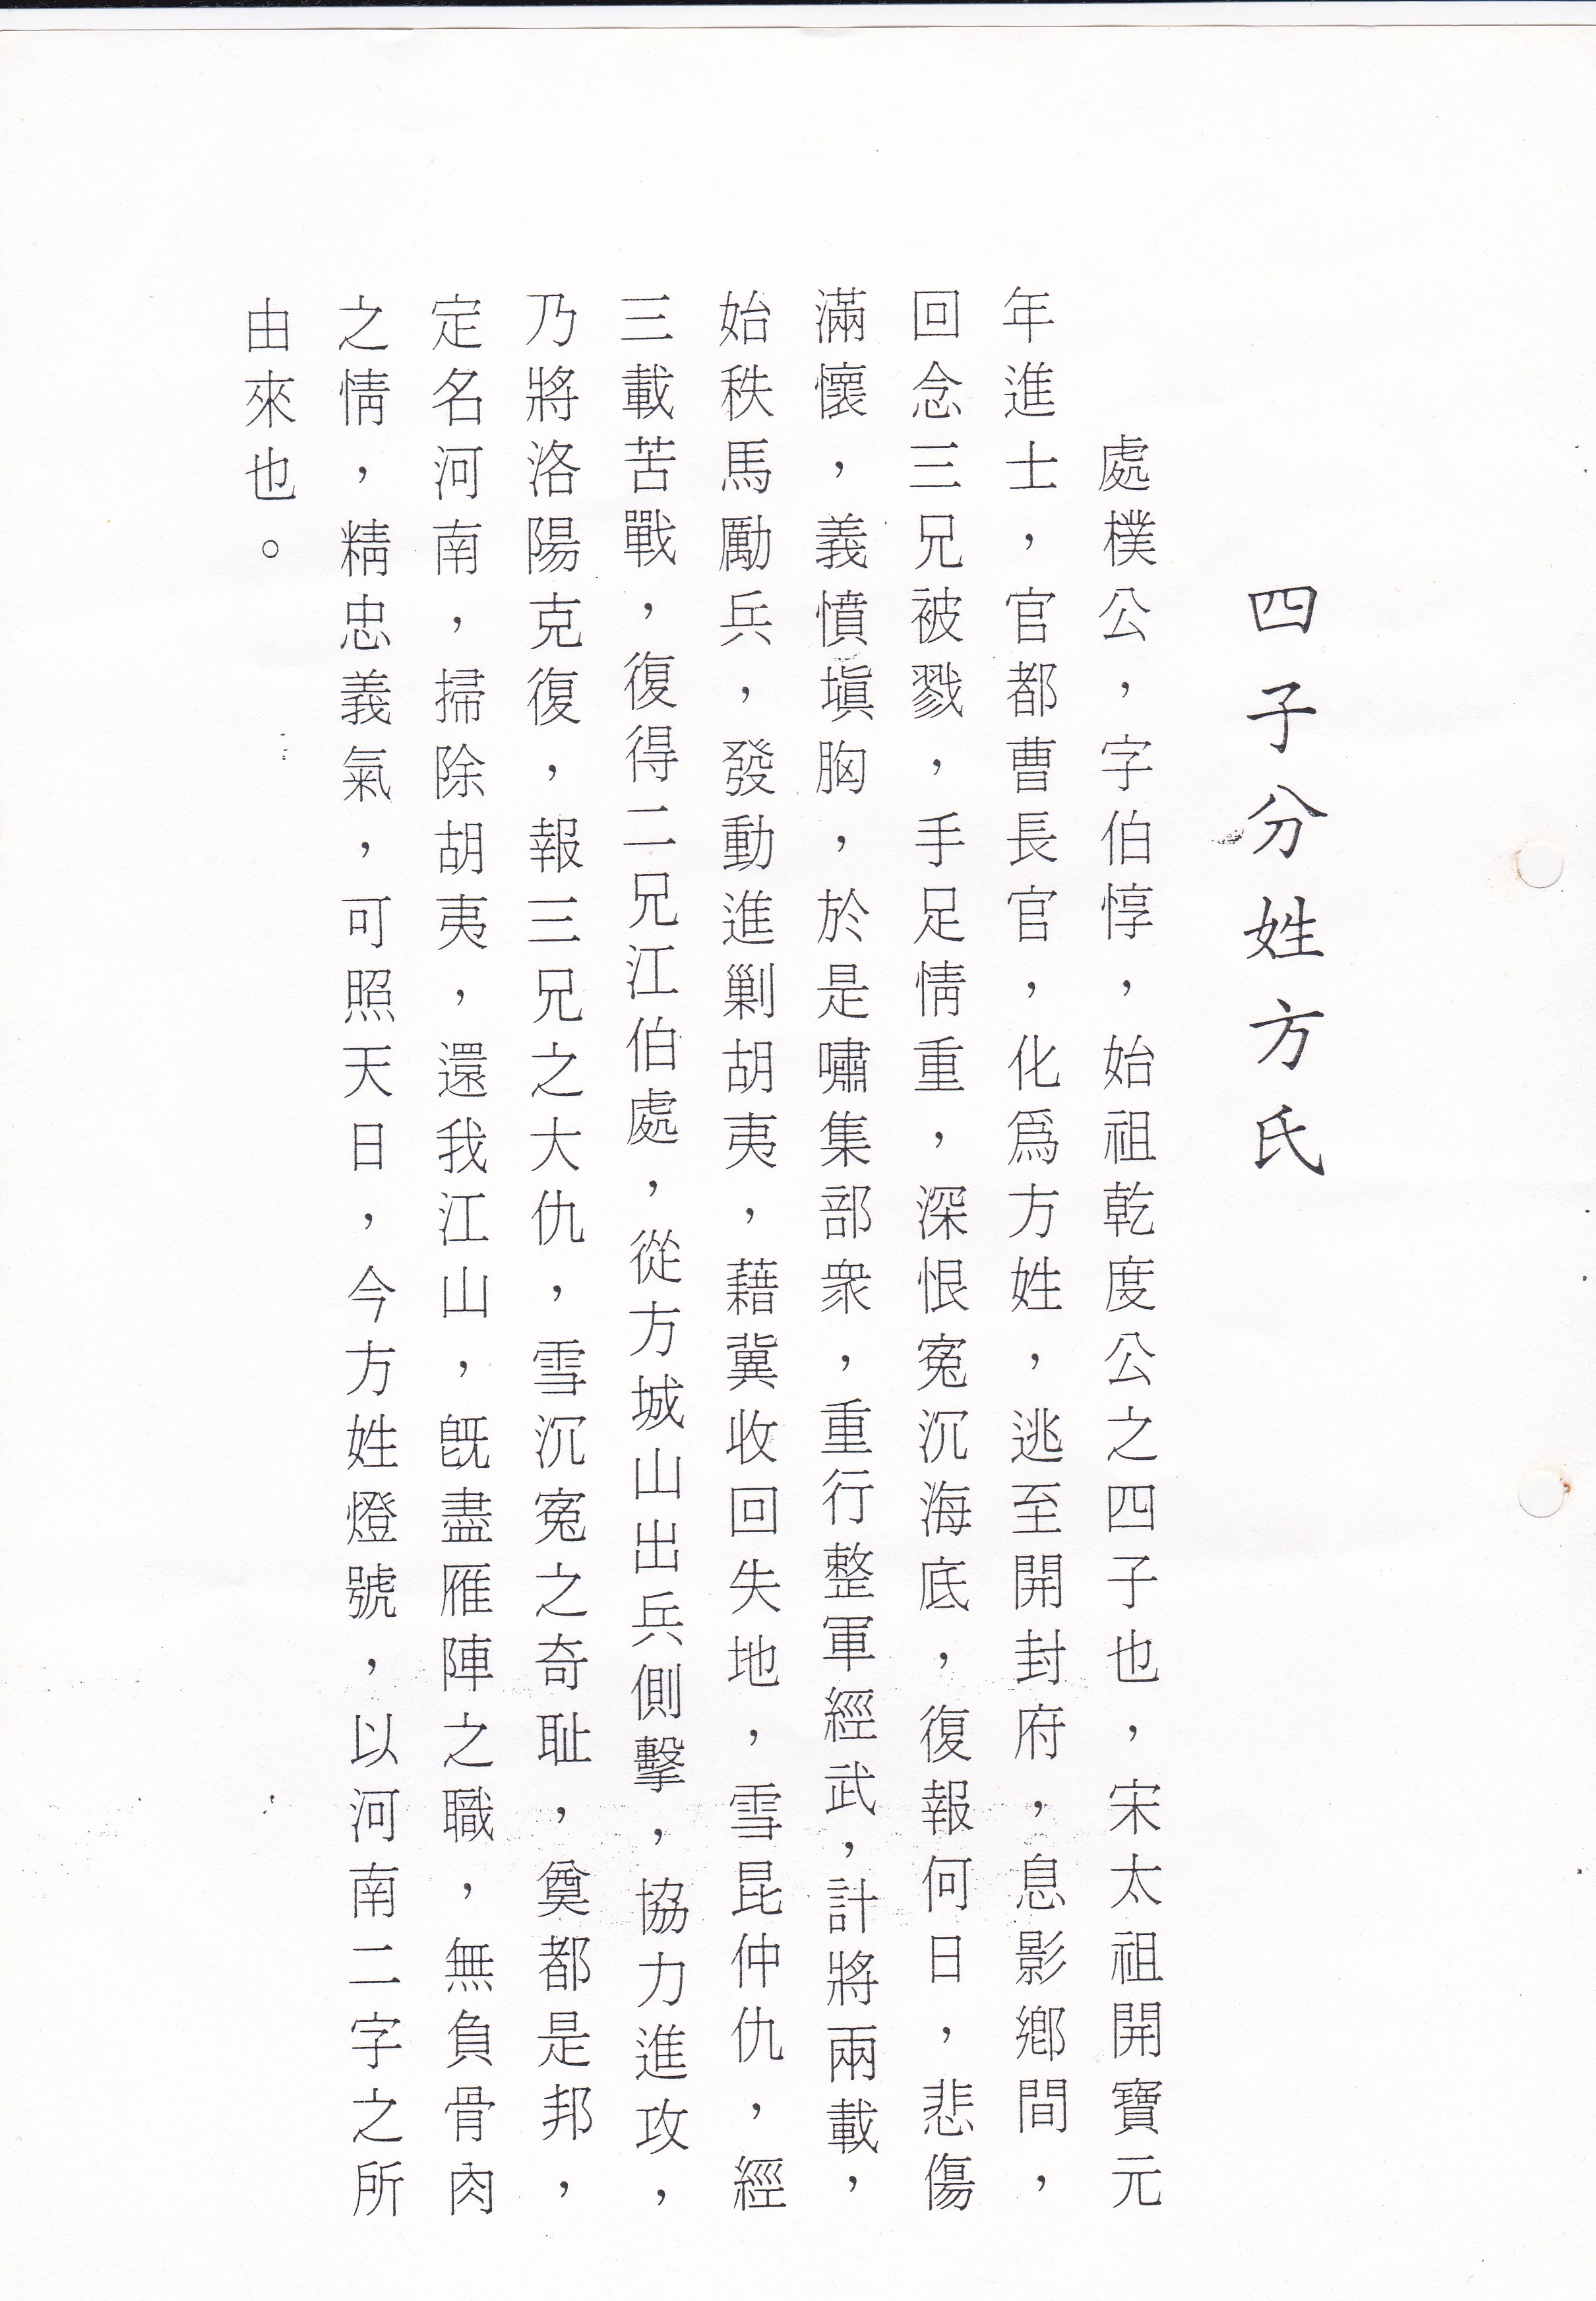 四子分姓方氏
處樸公，字伯惇，始祖乾度公之四子也，宋太祖開寶元
年進士，官都曹長官，化爲方姓，逃至開封府，息影鄉間，
回念三兄被戮，手足情重，深恨冤沉海底，復報何日，悲傷
滿懷，義憤塡胸，於是嘯集部衆，重行整軍經武，計將兩載，
始秩馬勵兵，發動進剿胡夷，藉冀收回失地，雪昆仲仇，經
三載苦戰，復得二兄江伯處，從方城山出兵側擊，協力進攻，
乃將洛陽克復，報三兄之大仇，雪沉冤之奇耻，奠都是邦，
定名河南，掃除胡夷，還我江山，旣盡雁陣之職，無負骨肉
之情，精忠義氣，可照天日，今方姓燈號，以河南二字之所
由來也。